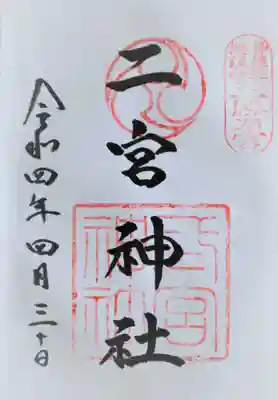 二宮神社
令和四年四月三十日